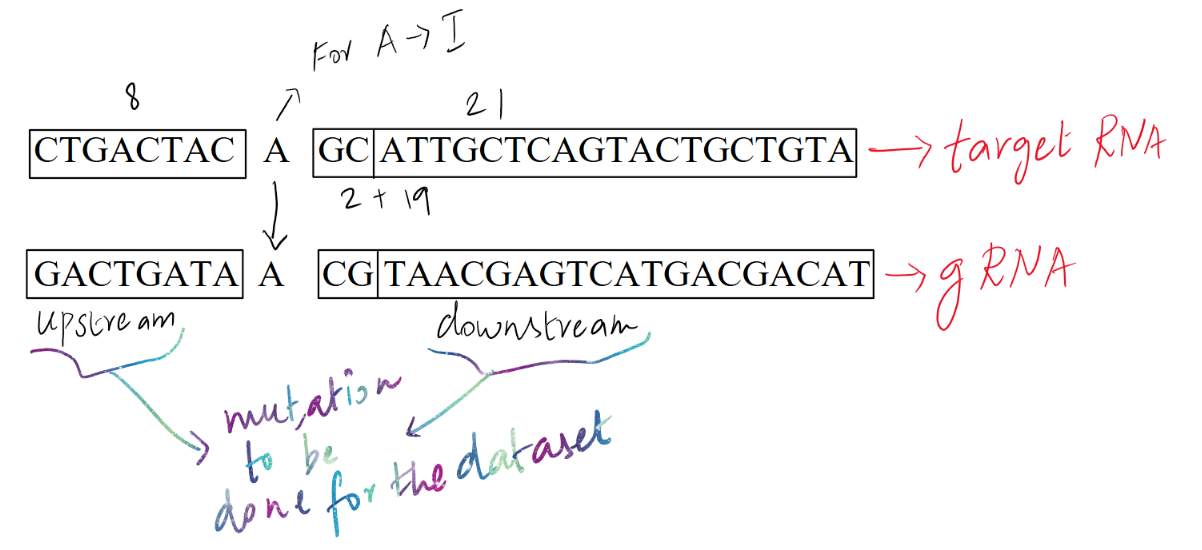 For A → I
8
21
CTGACTAC A GC ATTGCTCAGTACTGCTGTA → target RNA
2 + 19
GACTGATA A CG TAACGAGTCATGACGACAT → gRNA
upstream downstream
mutation
to be
done for the dataset